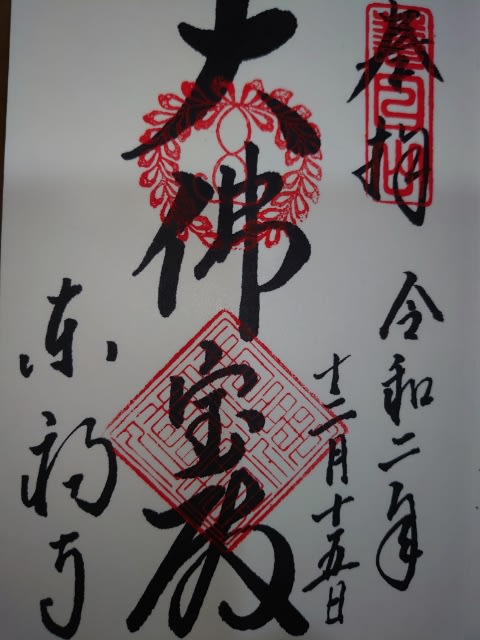 奉拝
令和二年
十二月十五日
大佛宝殿
东福寺